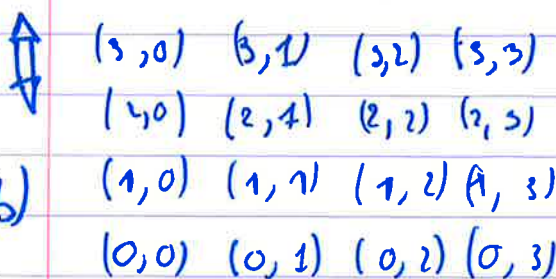 (3,0) (3,1) (3,2) (3,3)
(2,0) (2,1) (2,2) (2,3)
b) (1,0) (1,1) (1,2) (1,3)
(0,0) (0,1) (0,2) (0,3)